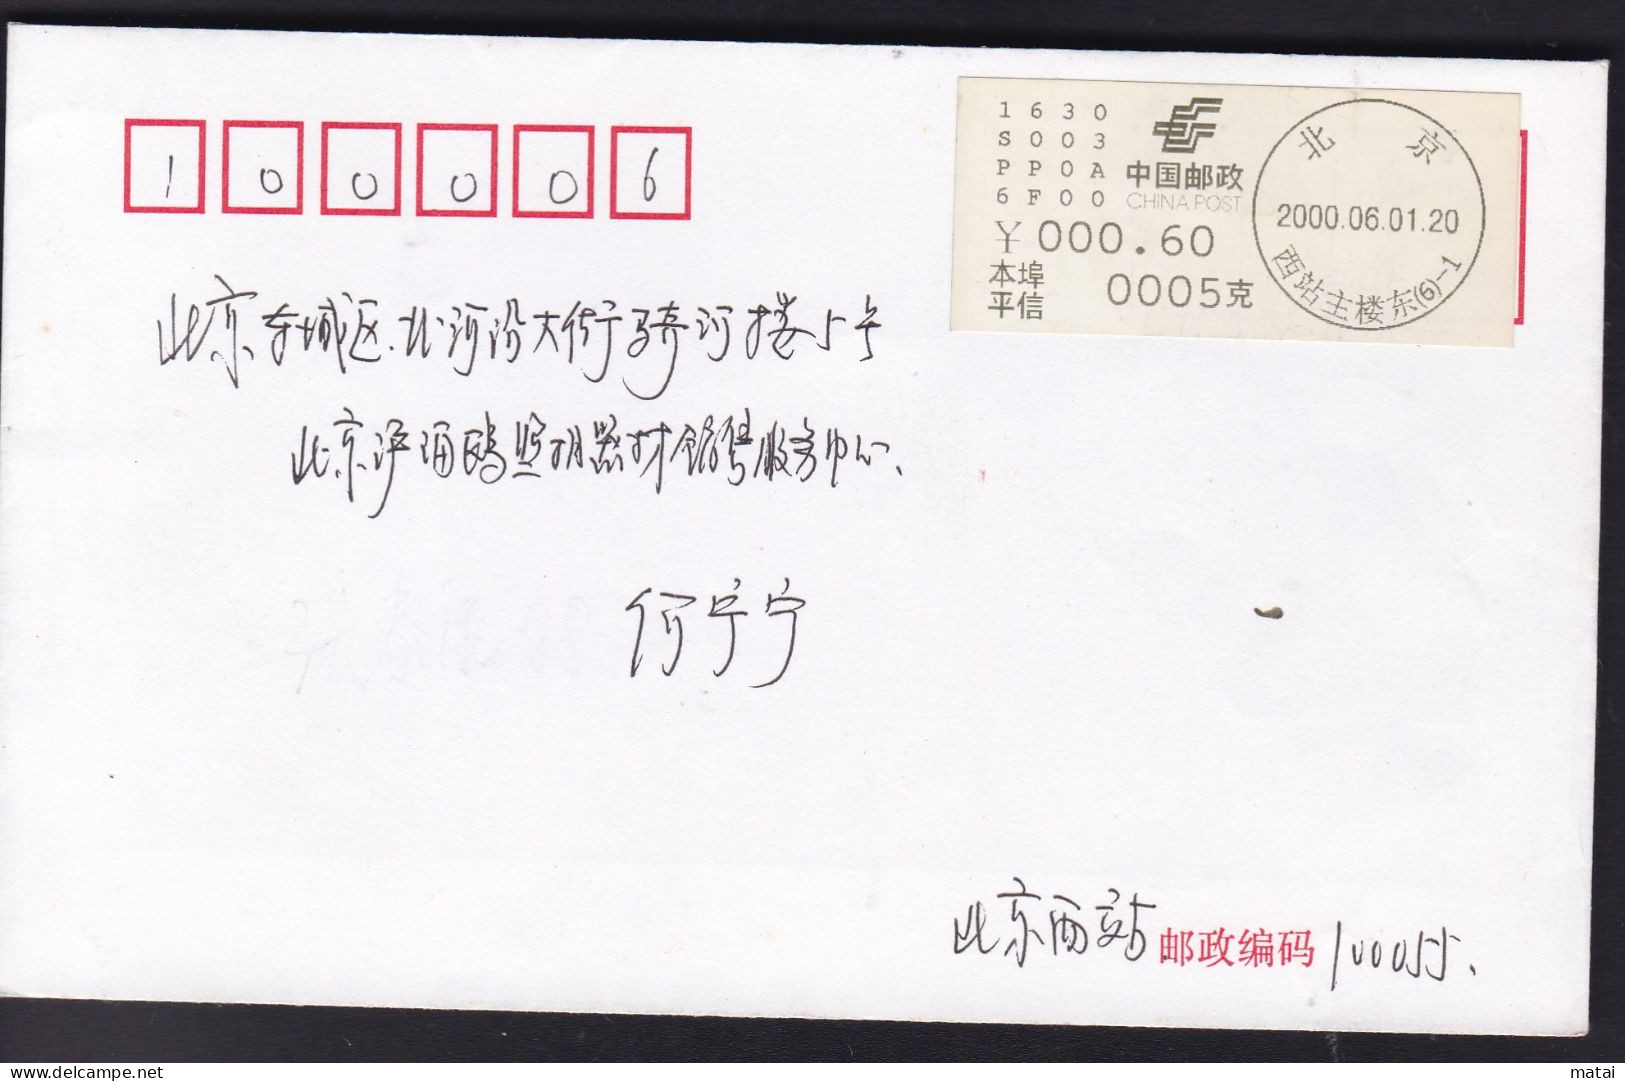 100006
1630
S003
PP0A
6F00
中国邮政
CHINA POST
¥000.60
本埠
平信
0005克
北京
2000.06.01.20
西站主楼东(6)-1
北京东城区.北河沿大街骑河楼5号
北京沪通鸥照明器材销售服务中心、
何宁宁
北京西站 邮政编码 100055、
matai